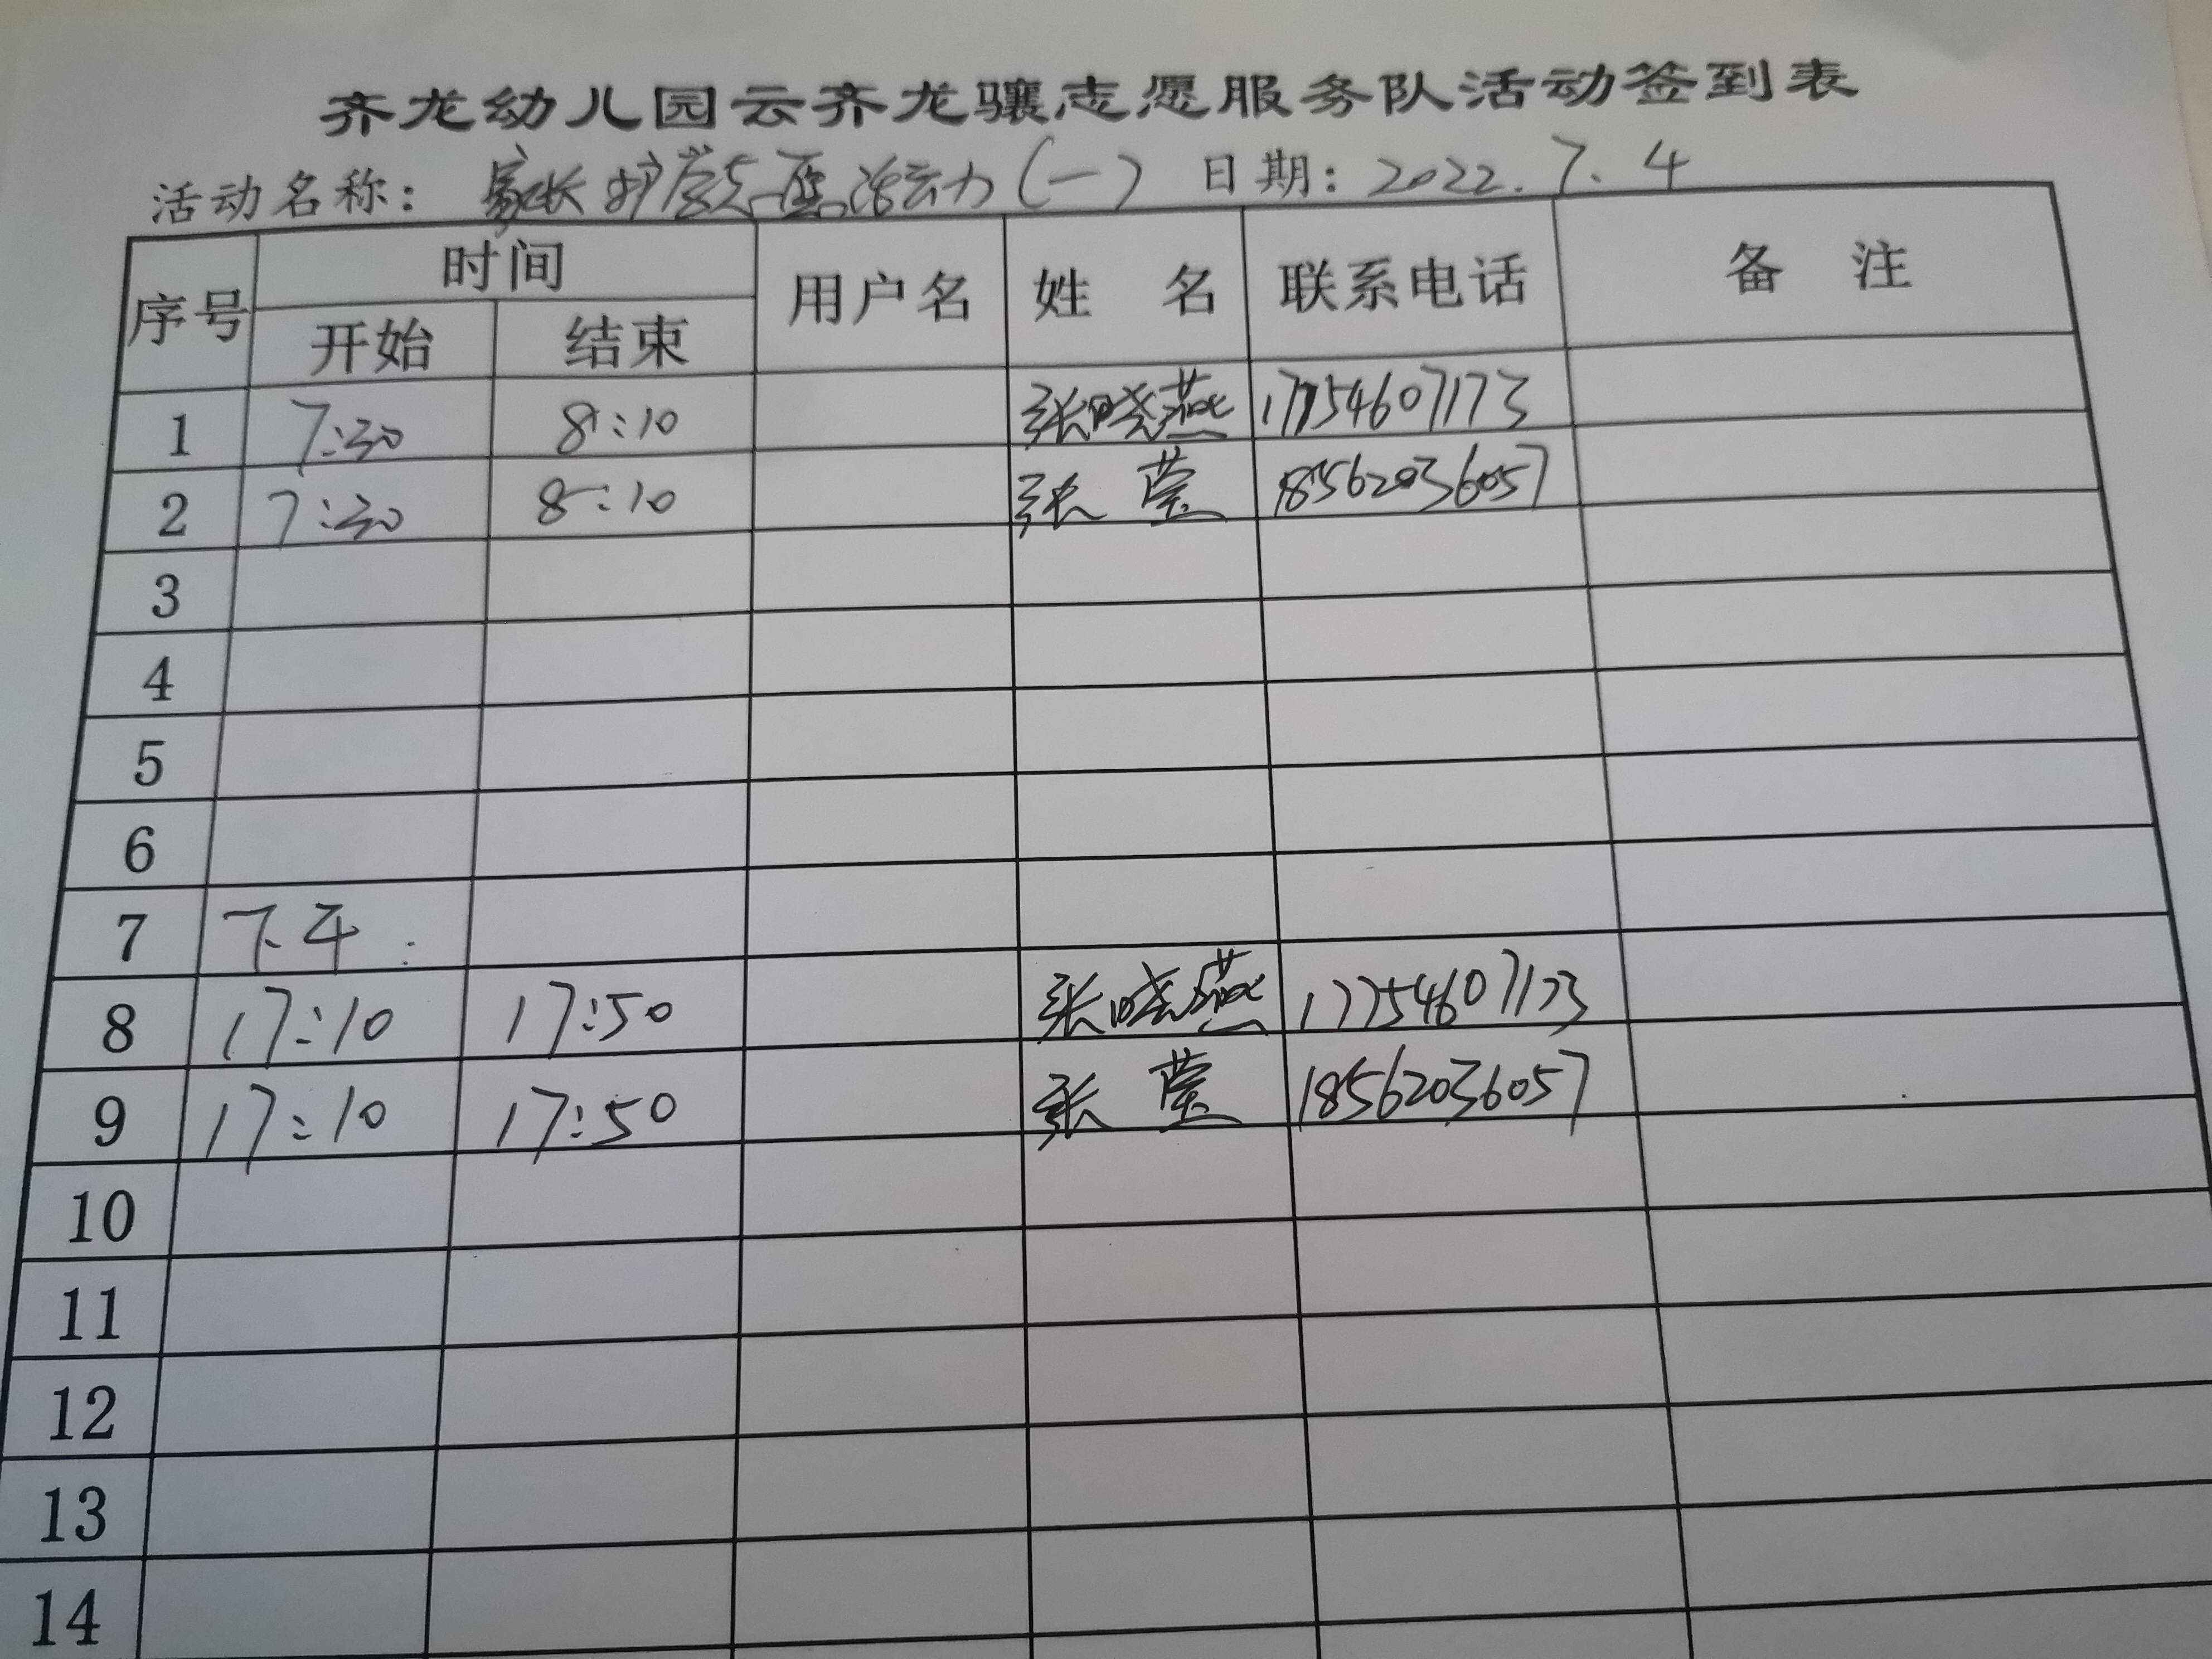 齐龙幼儿园云齐龙骧志愿服务队活动签到表
活动名称：家长护学志愿活动(一) 日期：2022.7.4
序号 时间 用户名 姓 名 联系电话 备 注
开始 结束
1 7:30 8:10 张晓燕 17754607173
2 7:30 8:10 张 莹 18562036057
3
4
5
6
7 下午:
8 17:10 17:50 张晓燕 17754607173
9 17:10 17:50 张 莹 18562036057
10
11
12
13
14